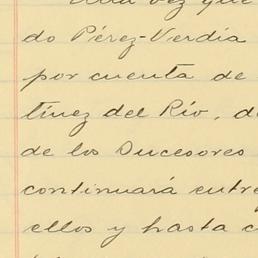 Una vez que
do Pérez-Verdía
por cuenta de
tínez del Río, d
de los Sucesores
continuará entre
ellos y hasta c